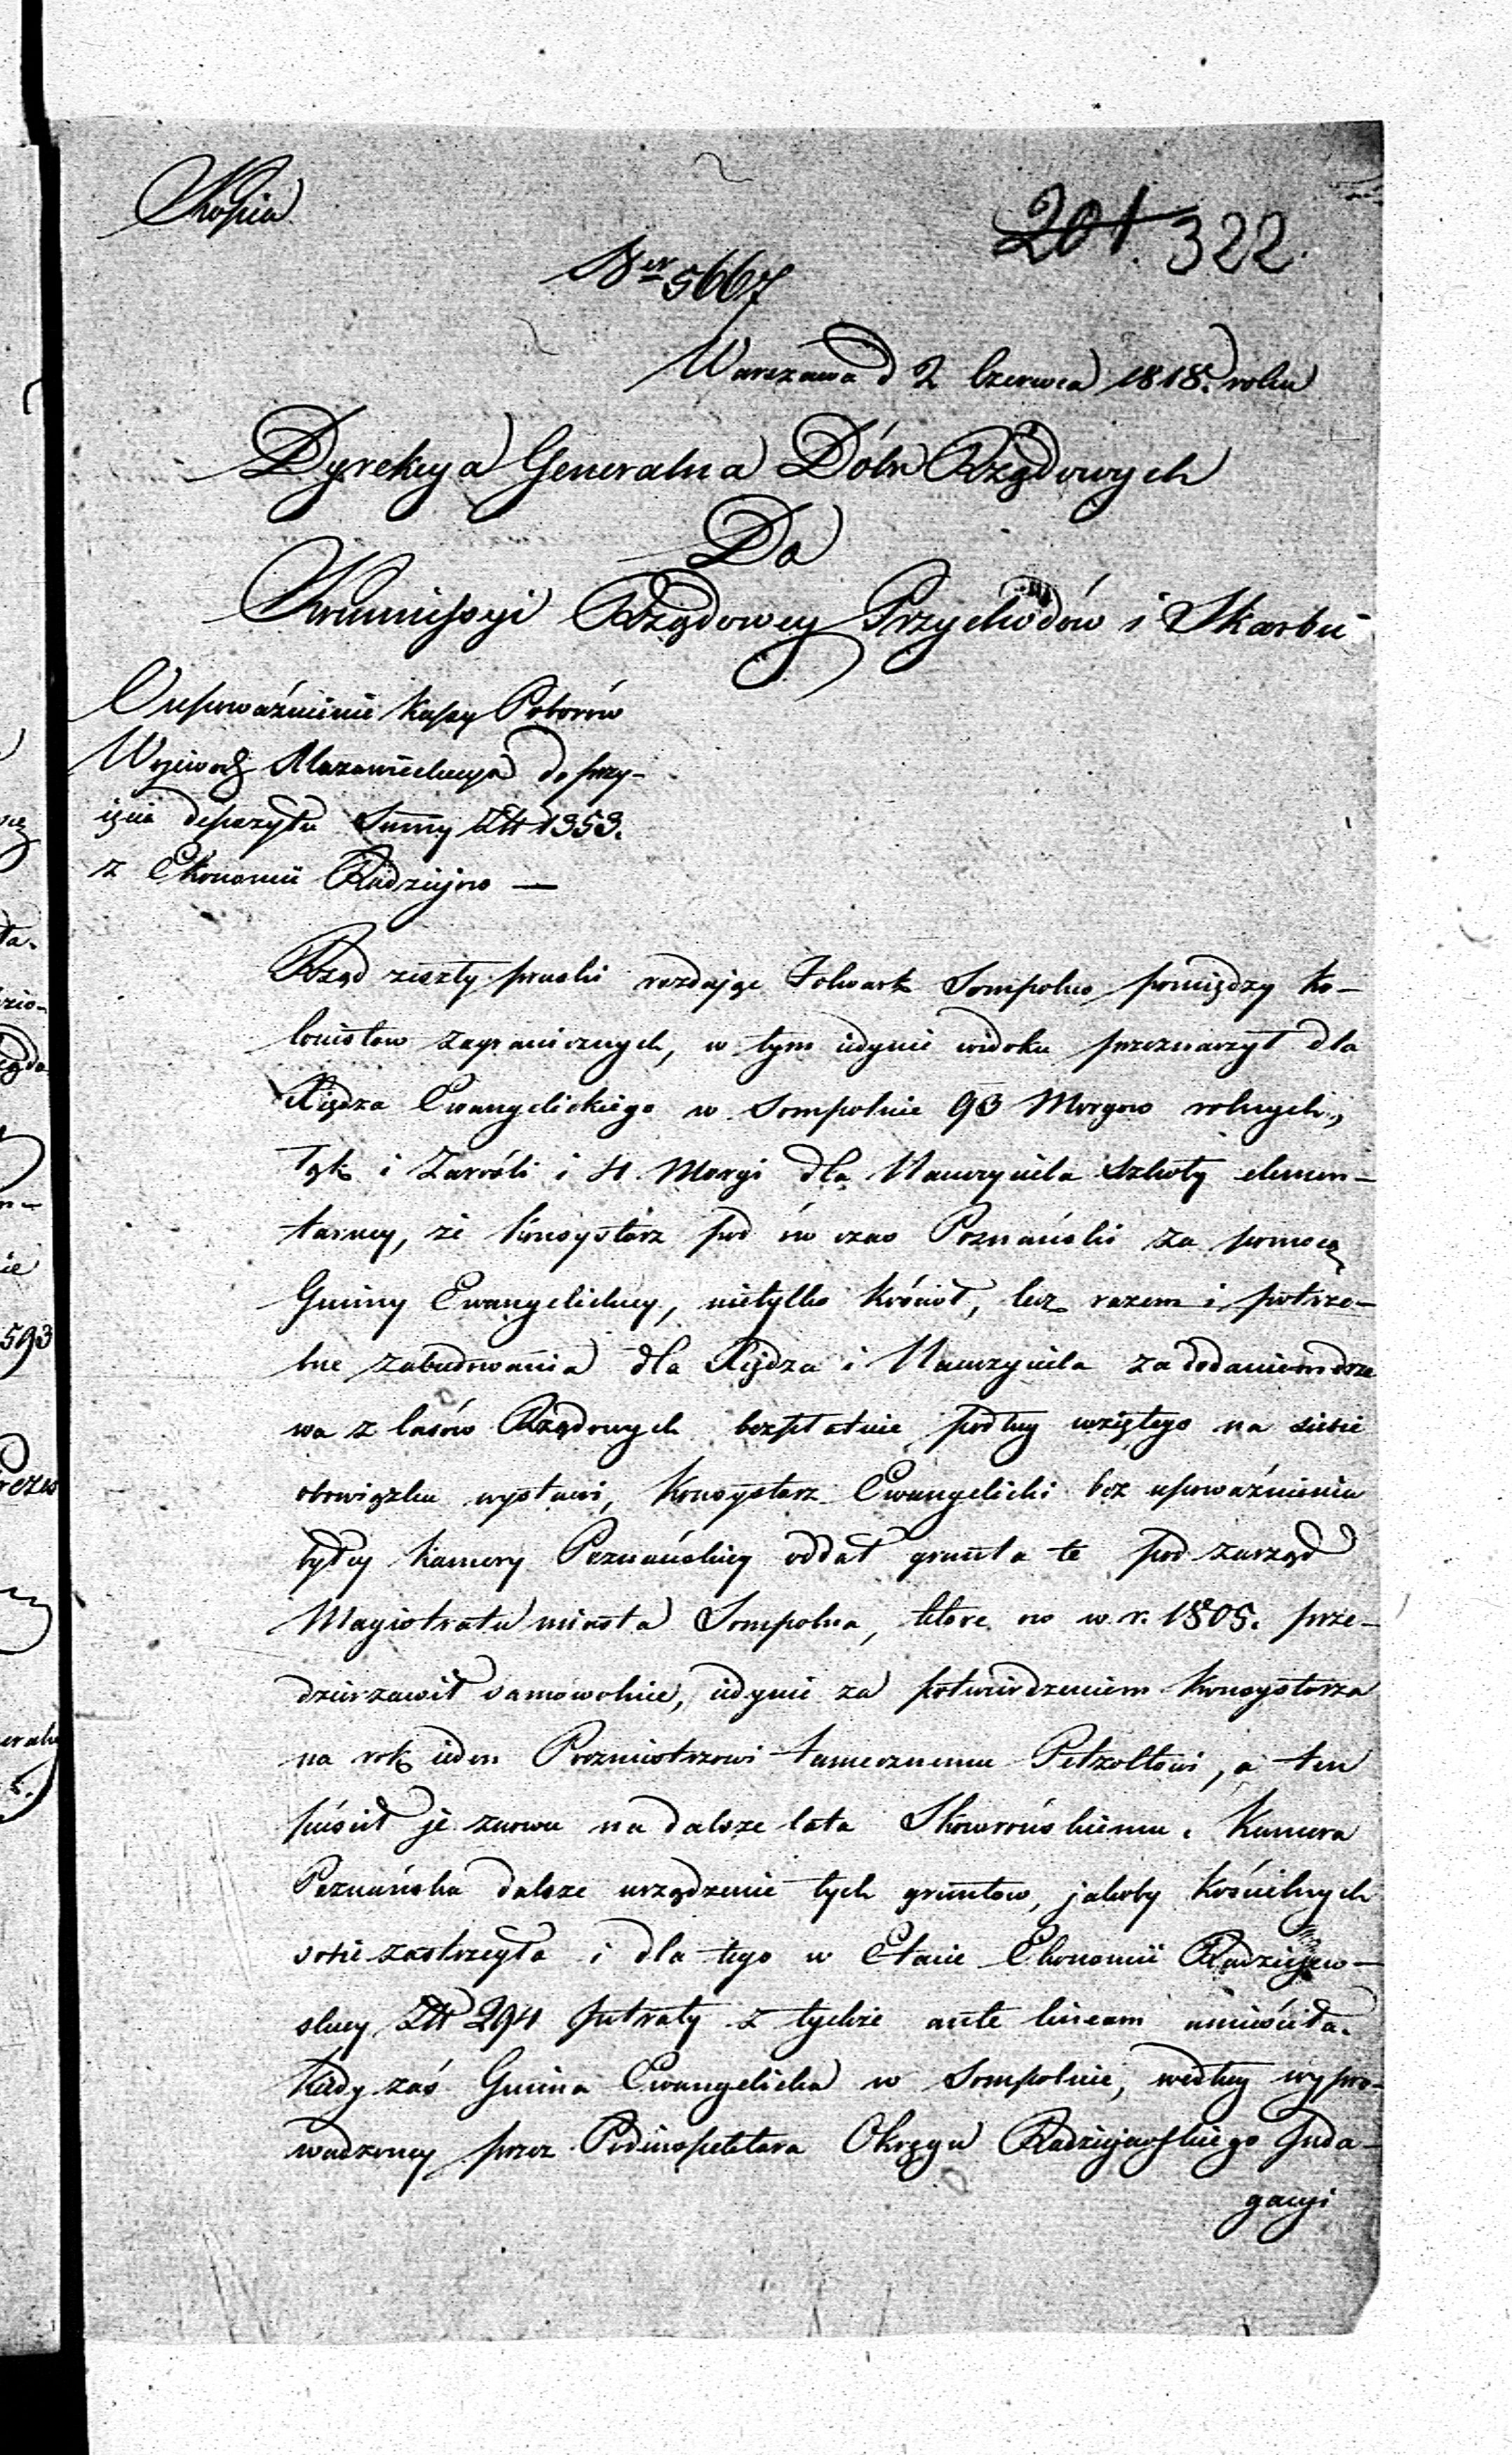 Kopia
201. 322.
Ner 5667
Warszawa d 2 Czerwca 1818. roku
Dyrekcya Generalna Dóbr Rządowych
Do
Kommissyi Rządowey Przychodów i Skarbu
O upoważnienie Kassy Poborów
Wojewodz Mazowieckiego do przy-
ięcia depozytu Summy Złł 1353.
z Ekonomii Radziejow —
Rząd zeszły pruski rozdając Folwark Sompolno pomiędzy ko-
lonistow zagranicznych, w tym iedynie widoku przeznaczył dla
Xiędza Ewangelickiego w Sompolnie 93 Morgow rolnych,
Łąk i Zarośli i 4. Morgi dla Nauczyciela Szkoły elemen-
tarney, że Konsystorz pod ów czas Poznański za pomocą
Gminy Ewangelickiey, nietylko Kościoł, lecz razem i potrze-
bne zabudowania dla Xiędza i Nauczyciela za dodaniem drze
wa z lasów Rządowych bezpłatnie podług wziętego na siebie
obowiązku wystawi, Konsystorz Ewangelicki bez upoważnienia
byłey Kamery Poznańskiey oddał grunta te pod zarząd
Magistratu miasta Sompolna, ktore no w r. 1805. prze-
dzierzawił samowolnie, iedynie za potwierdzeniem Konsystorza
na rok ieden Pocztmistrzowi tamecznemu Petzoltowi, a ten
puścił je znowu na dalsze lata Skowrońskiemu. Kamera
Poznańska dalsze urządzenie tych gruntow, jakoby Kościelnych
sobie zastrzegła i dla tego w Etacie Ekonomii Radziejew-
skiey Złł 294 intraty z tychże ante lineam umieściła.
Kiedy zaś Gmina Ewangelicka w Sompolnie, według wypro-
wadzoney przez Podinspektora Okręgu Radziejewskiego Inda-
gacyi